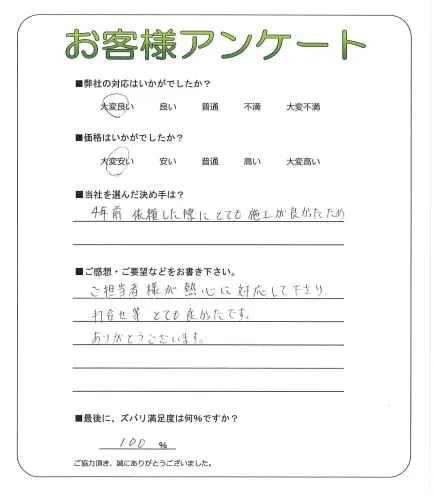 お客様アンケート
■弊社の対応はいかがでしたか？
大変良い 良い 普通 不満 大変不満
■価格はいかがでしたか？
大変安い 安い 普通 高い 大変高い
■当社を選んだ決め手は？
4年前 依頼した際にとても施工が良かったため
■ご感想・ご要望などをお書き下さい。
ご担当者様が熱心に対応して下さり、
打合せ等とても良かったです。
ありがとうございます。
■最後に、ズバリ満足度は何％ですか？
100 %
ご協力頂き、誠にありがとうございました。